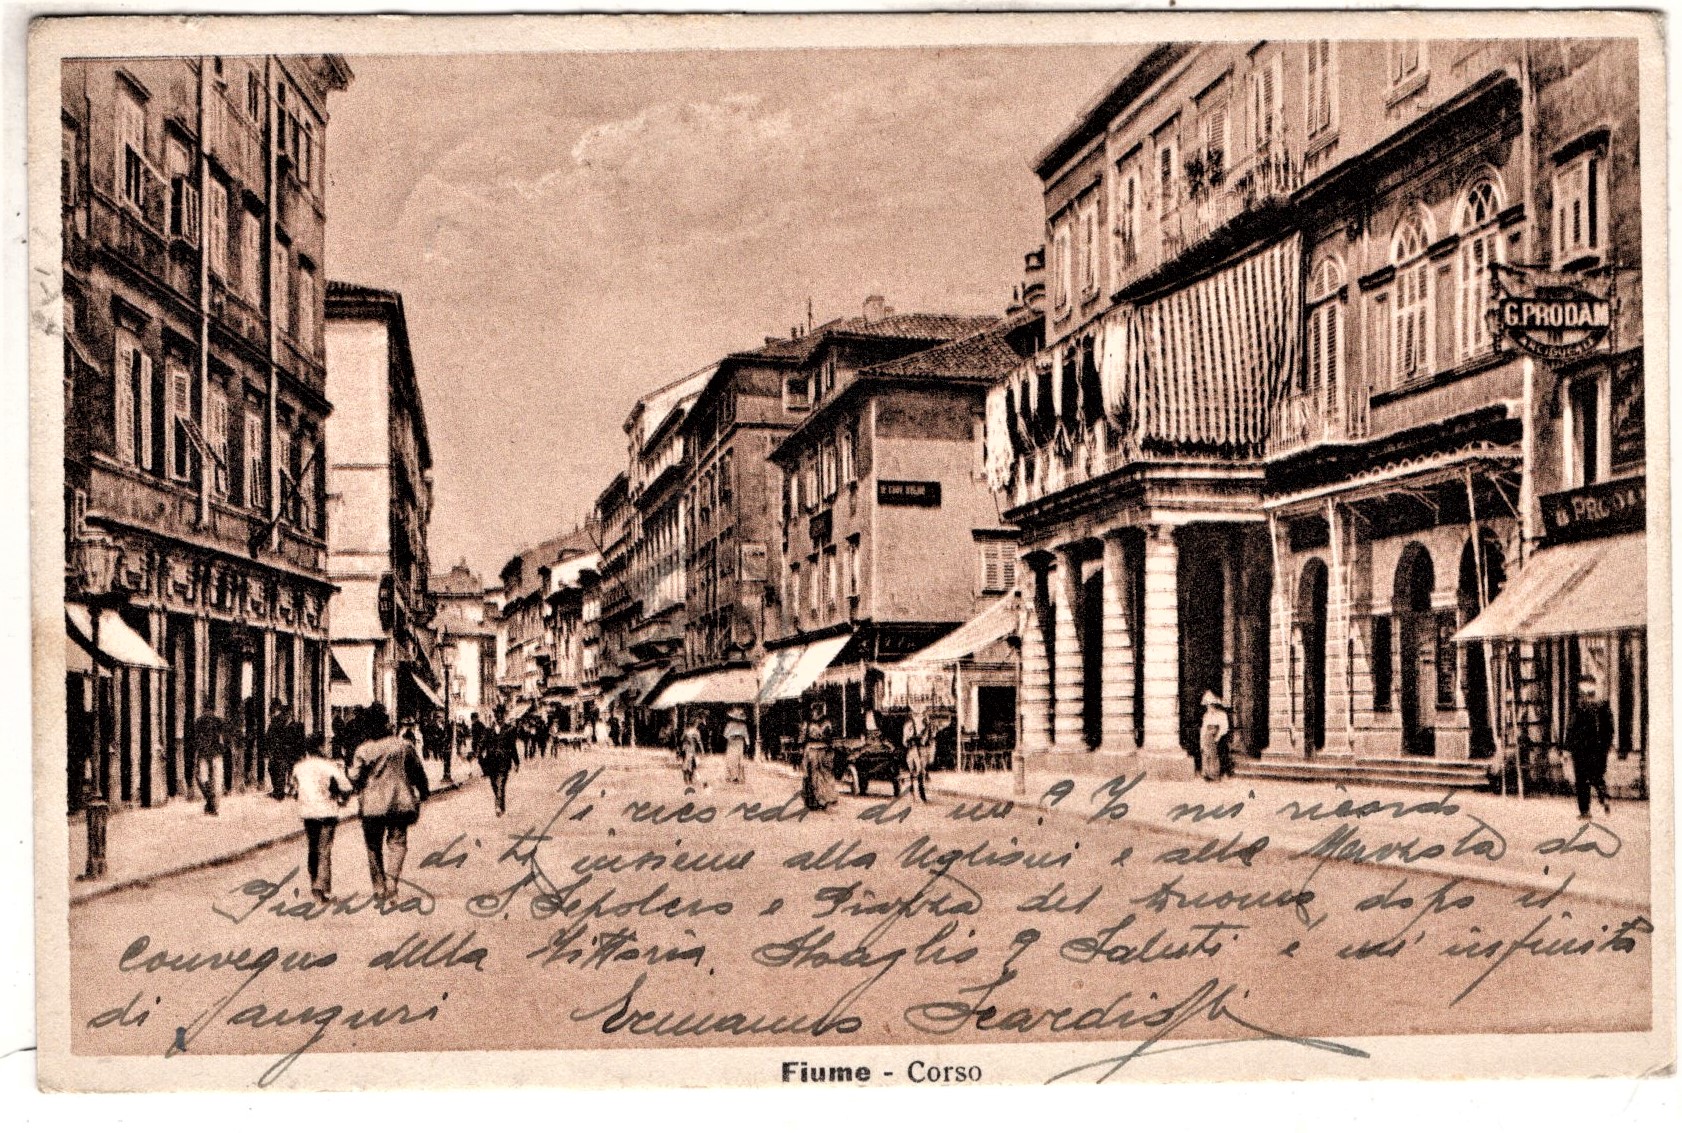 G. PRODAM
Ti ricordi di me? Io mi ricordo
di te insieme alla Ugliani e alla da
Piazza S. Sepolcro e Piazza del Duomo, dopo il
convegno della Vittoria. Sbaglio? Saluti e un' infinità
di auguri Ermanno
Fiume - Corso